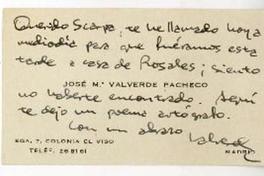 Querido Scarpa, te he llamado hoy a
mediodía para que fuéramos esta
tarde a casa de Rosales; siento
JOSÉ M.ª VALVERDE PACHECO
no haberte encontrado. Aquí
te dejo un poema autógrafo.
Con un abrazo Valverde
EGA, 7, COLONIA EL VISO
MADRID
TELÉF.